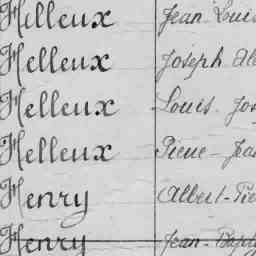 Helleux Jean-Louis
Helleux Joseph Ale
Helleux Louis-Jos
Helleux Pierre-Jean
Henry Albert-Pie
Henry Jean-Bapti